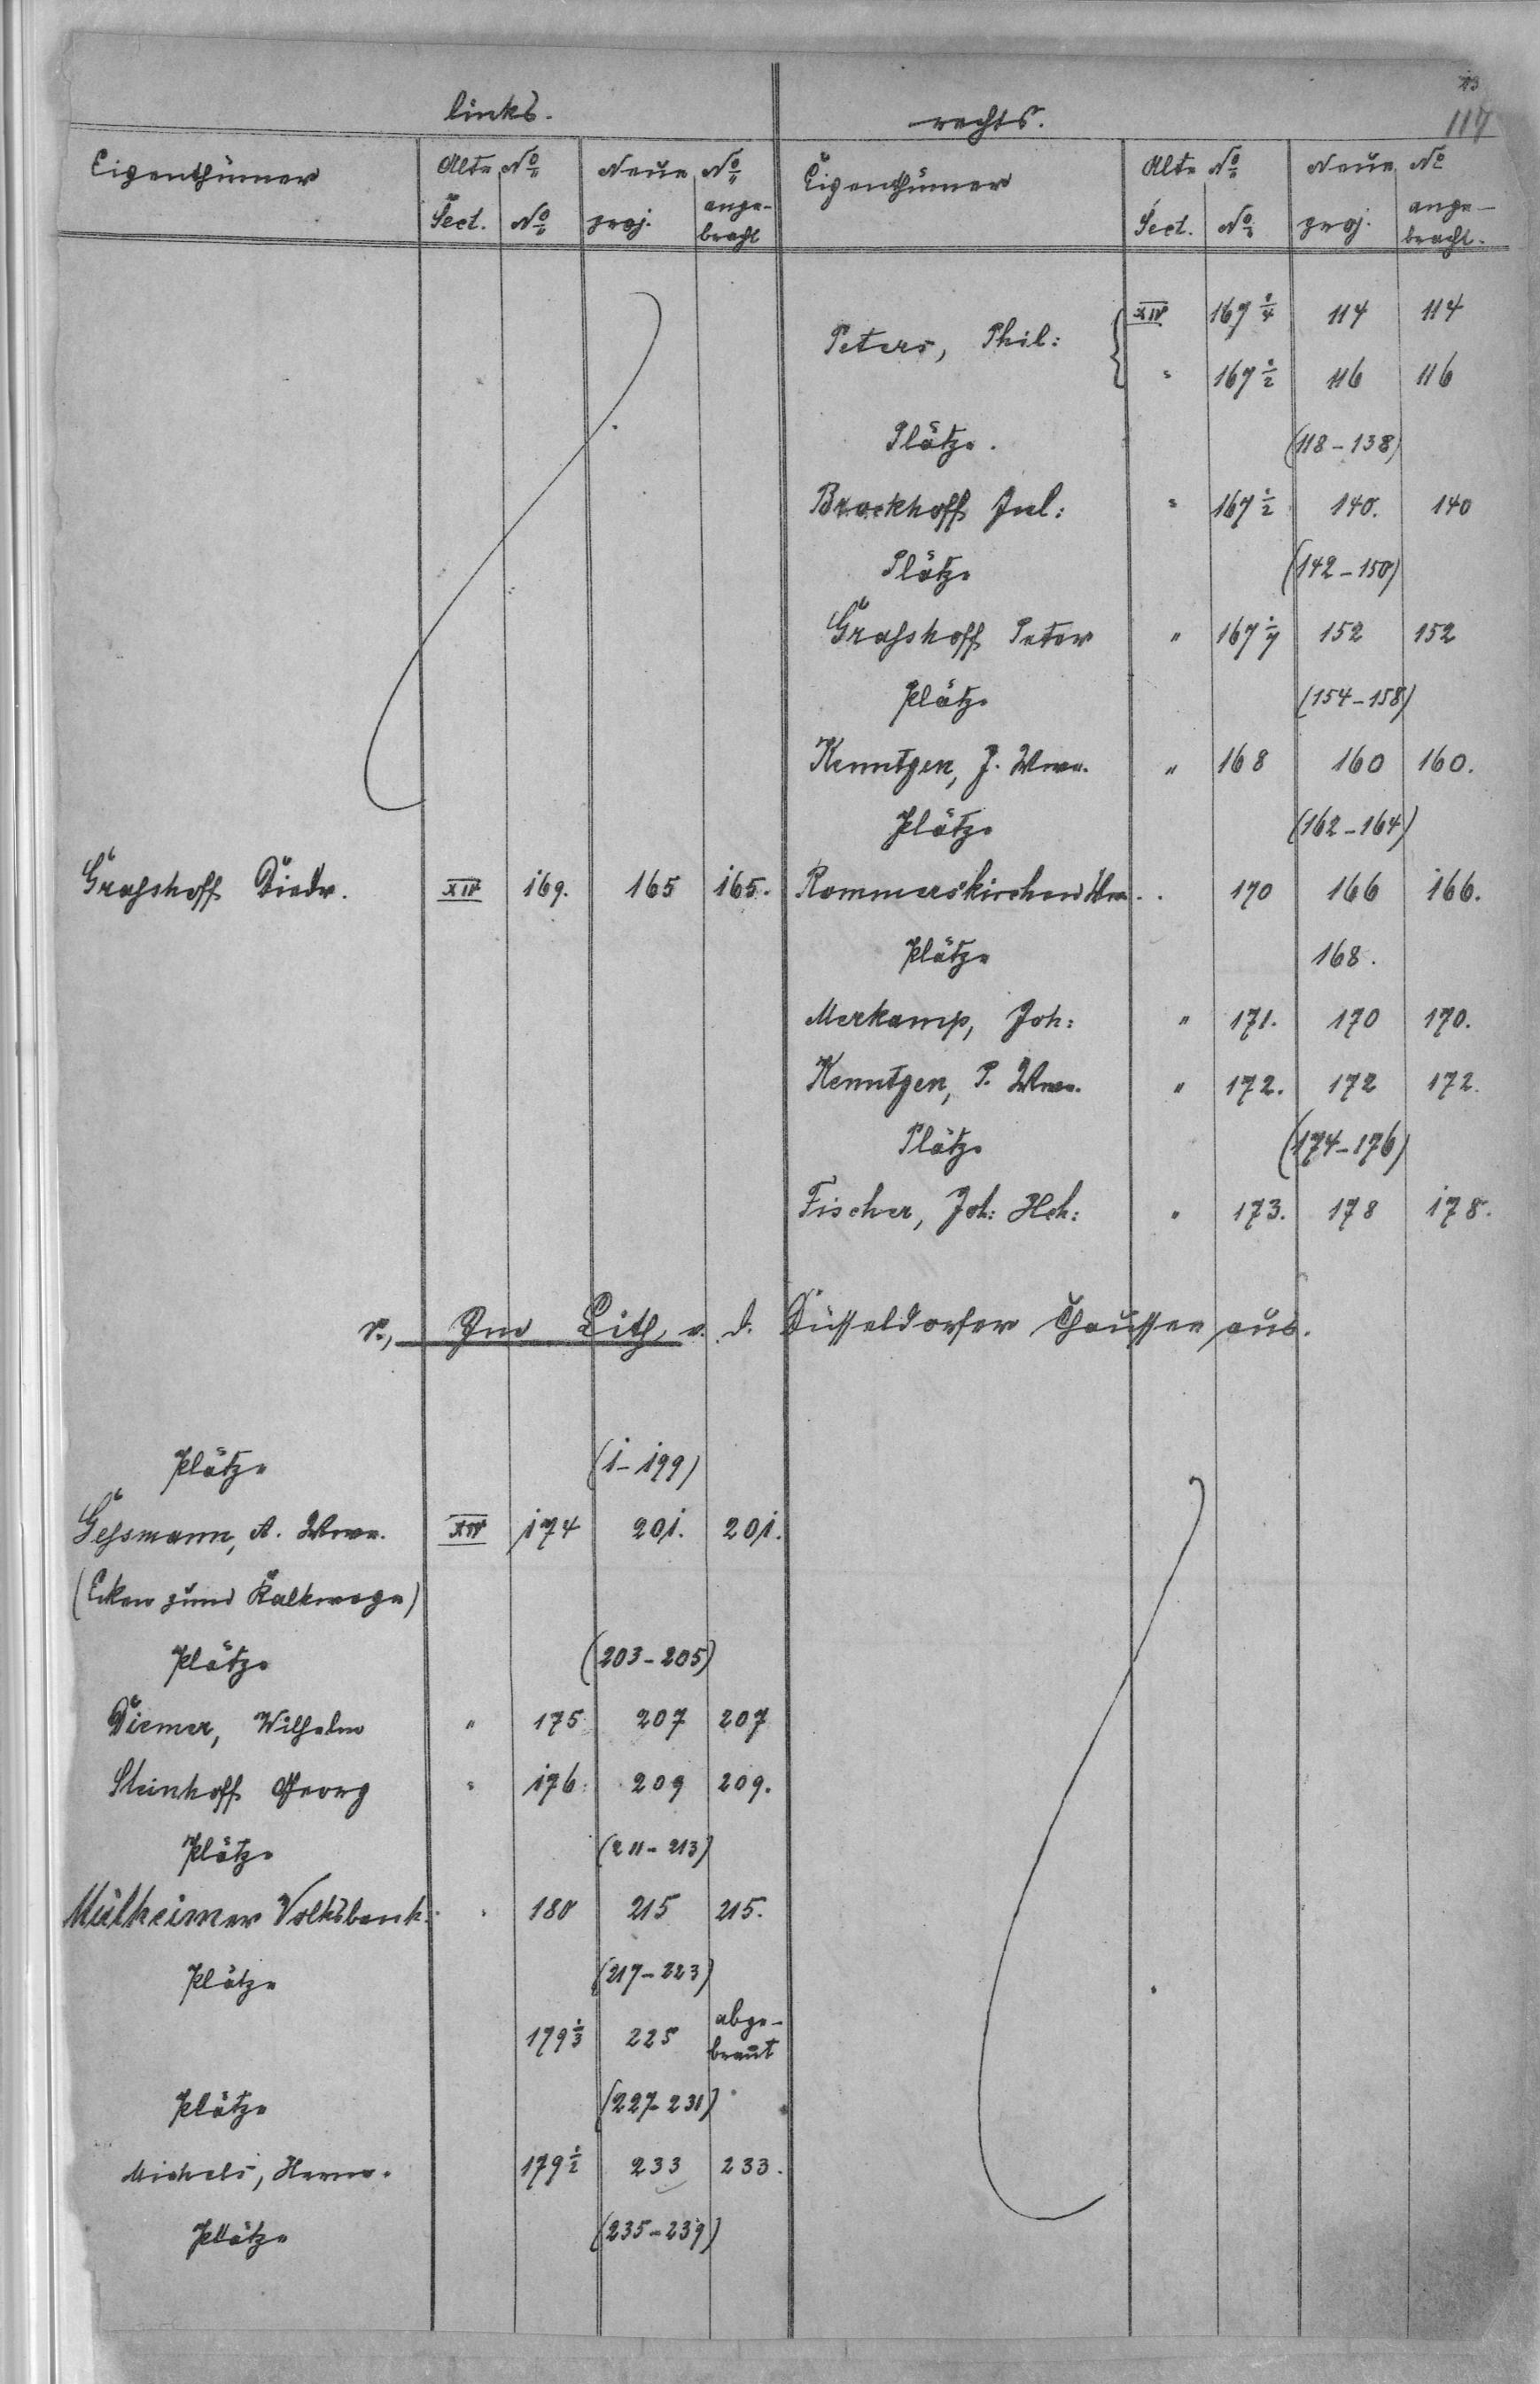 13
117
links. rechts.
Eigenthümer Alte No Neue No Eigenthümer Alte No Neue No
Sect. No proj. ange-bracht Sect. No proj. ange-bracht.
Peters, Phil: XIV 167 1/4 114 114
" 167 1/2 116 116
Plätze. (118-138)
Brockhoff Jul: " 167 1/2 140. 140
Plätze (142-150)
Graßhoff Peter " 167 1/7 152 152
Plätze (154-158)
Kenntgen, J. Wwe. " 168 160 160.
Plätze (162-164)
Graßhoff Diedr. XIV 169. 165 165. Rommerskirchen Wm. " 170 166 166.
Plätze 168.
Merkamp, Joh: " 171. 170 170.
Kenntgen, P. Wwe. " 172. 172 172.
Plätze (174-176)
Fischer, Joh: Hch: " 173. 178 178.
r., Im Lith, v. d. Düsseldorfer Chaussee aus.
Plätze (1-199)
Geßmann, A. Wwe. XIV 174 201. 201.
(Ecken zum Kalkwege)
Plätze (203-205)
Diemer, Wilhelm " 175 207 207
Steinhoff Georg " 176. 209 209.
Plätze (211-213)
Mülheimer Volksbank. " 180 215 215.
Plätze (217-223)
179 1/3 225 abge-
braut
Plätze (227-231)
Michels, Herm. 179 1/2 233 233.
Plätze (235-239)